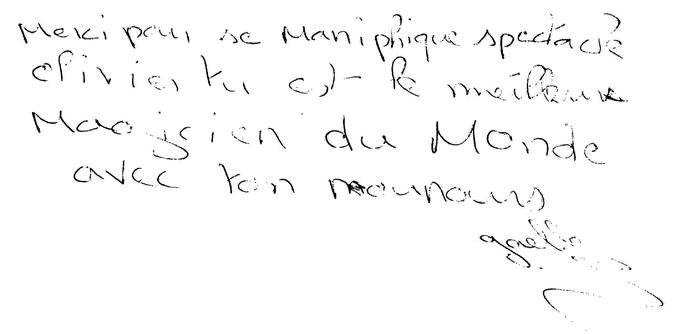 Merci pour se Maniphique spectacle
Olivier tu est le meilleure
Magicien du Monde
avec ton nounours
gaelle